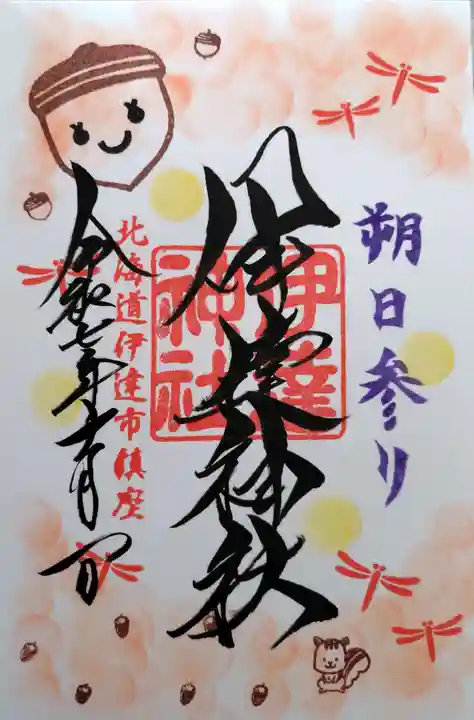 朔日参り
伊達神社
伊達
神社
北海道伊達市鎮座
令和七年十一月一日